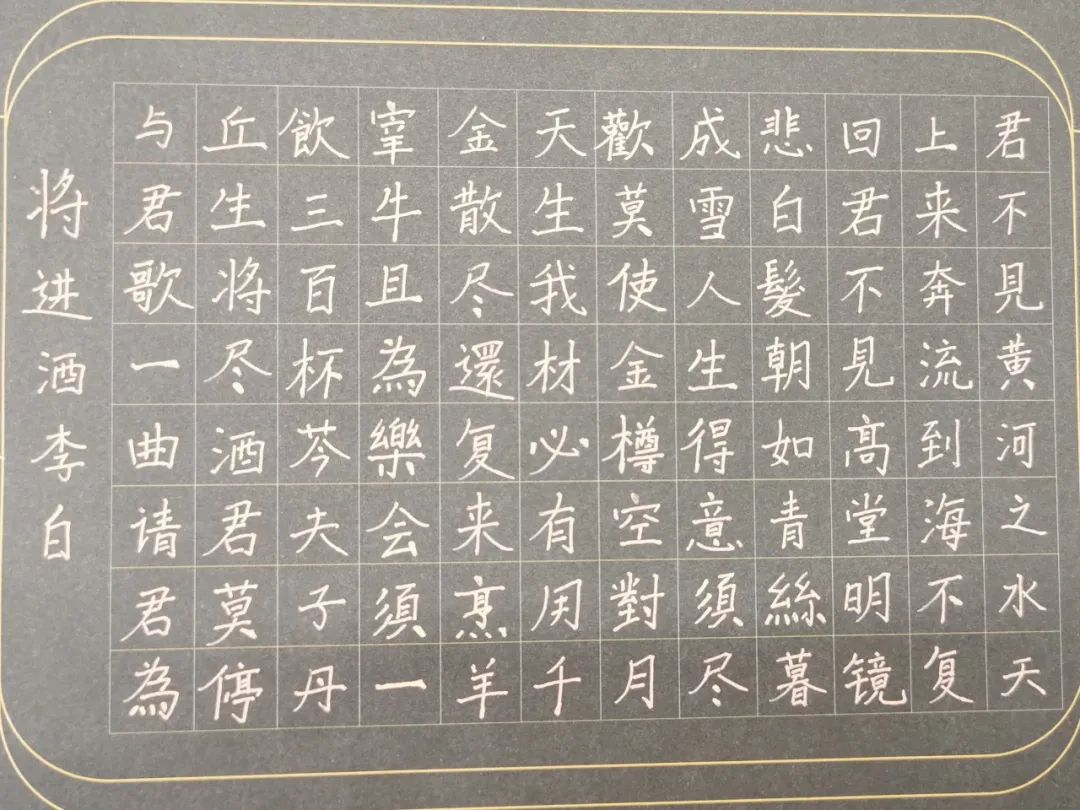 君不見黄河之水天
上来奔流到海不复
回君不見高堂明镜
悲白髮朝如青絲暮
成雪人生得意須尽
歡莫使金樽空對月
天生我材必有用千
金散尽還复来烹羊
宰牛且為樂会須一
飲三百杯芩夫子丹
丘生将尽酒君莫停
与君歌一曲请君為
将进酒李白